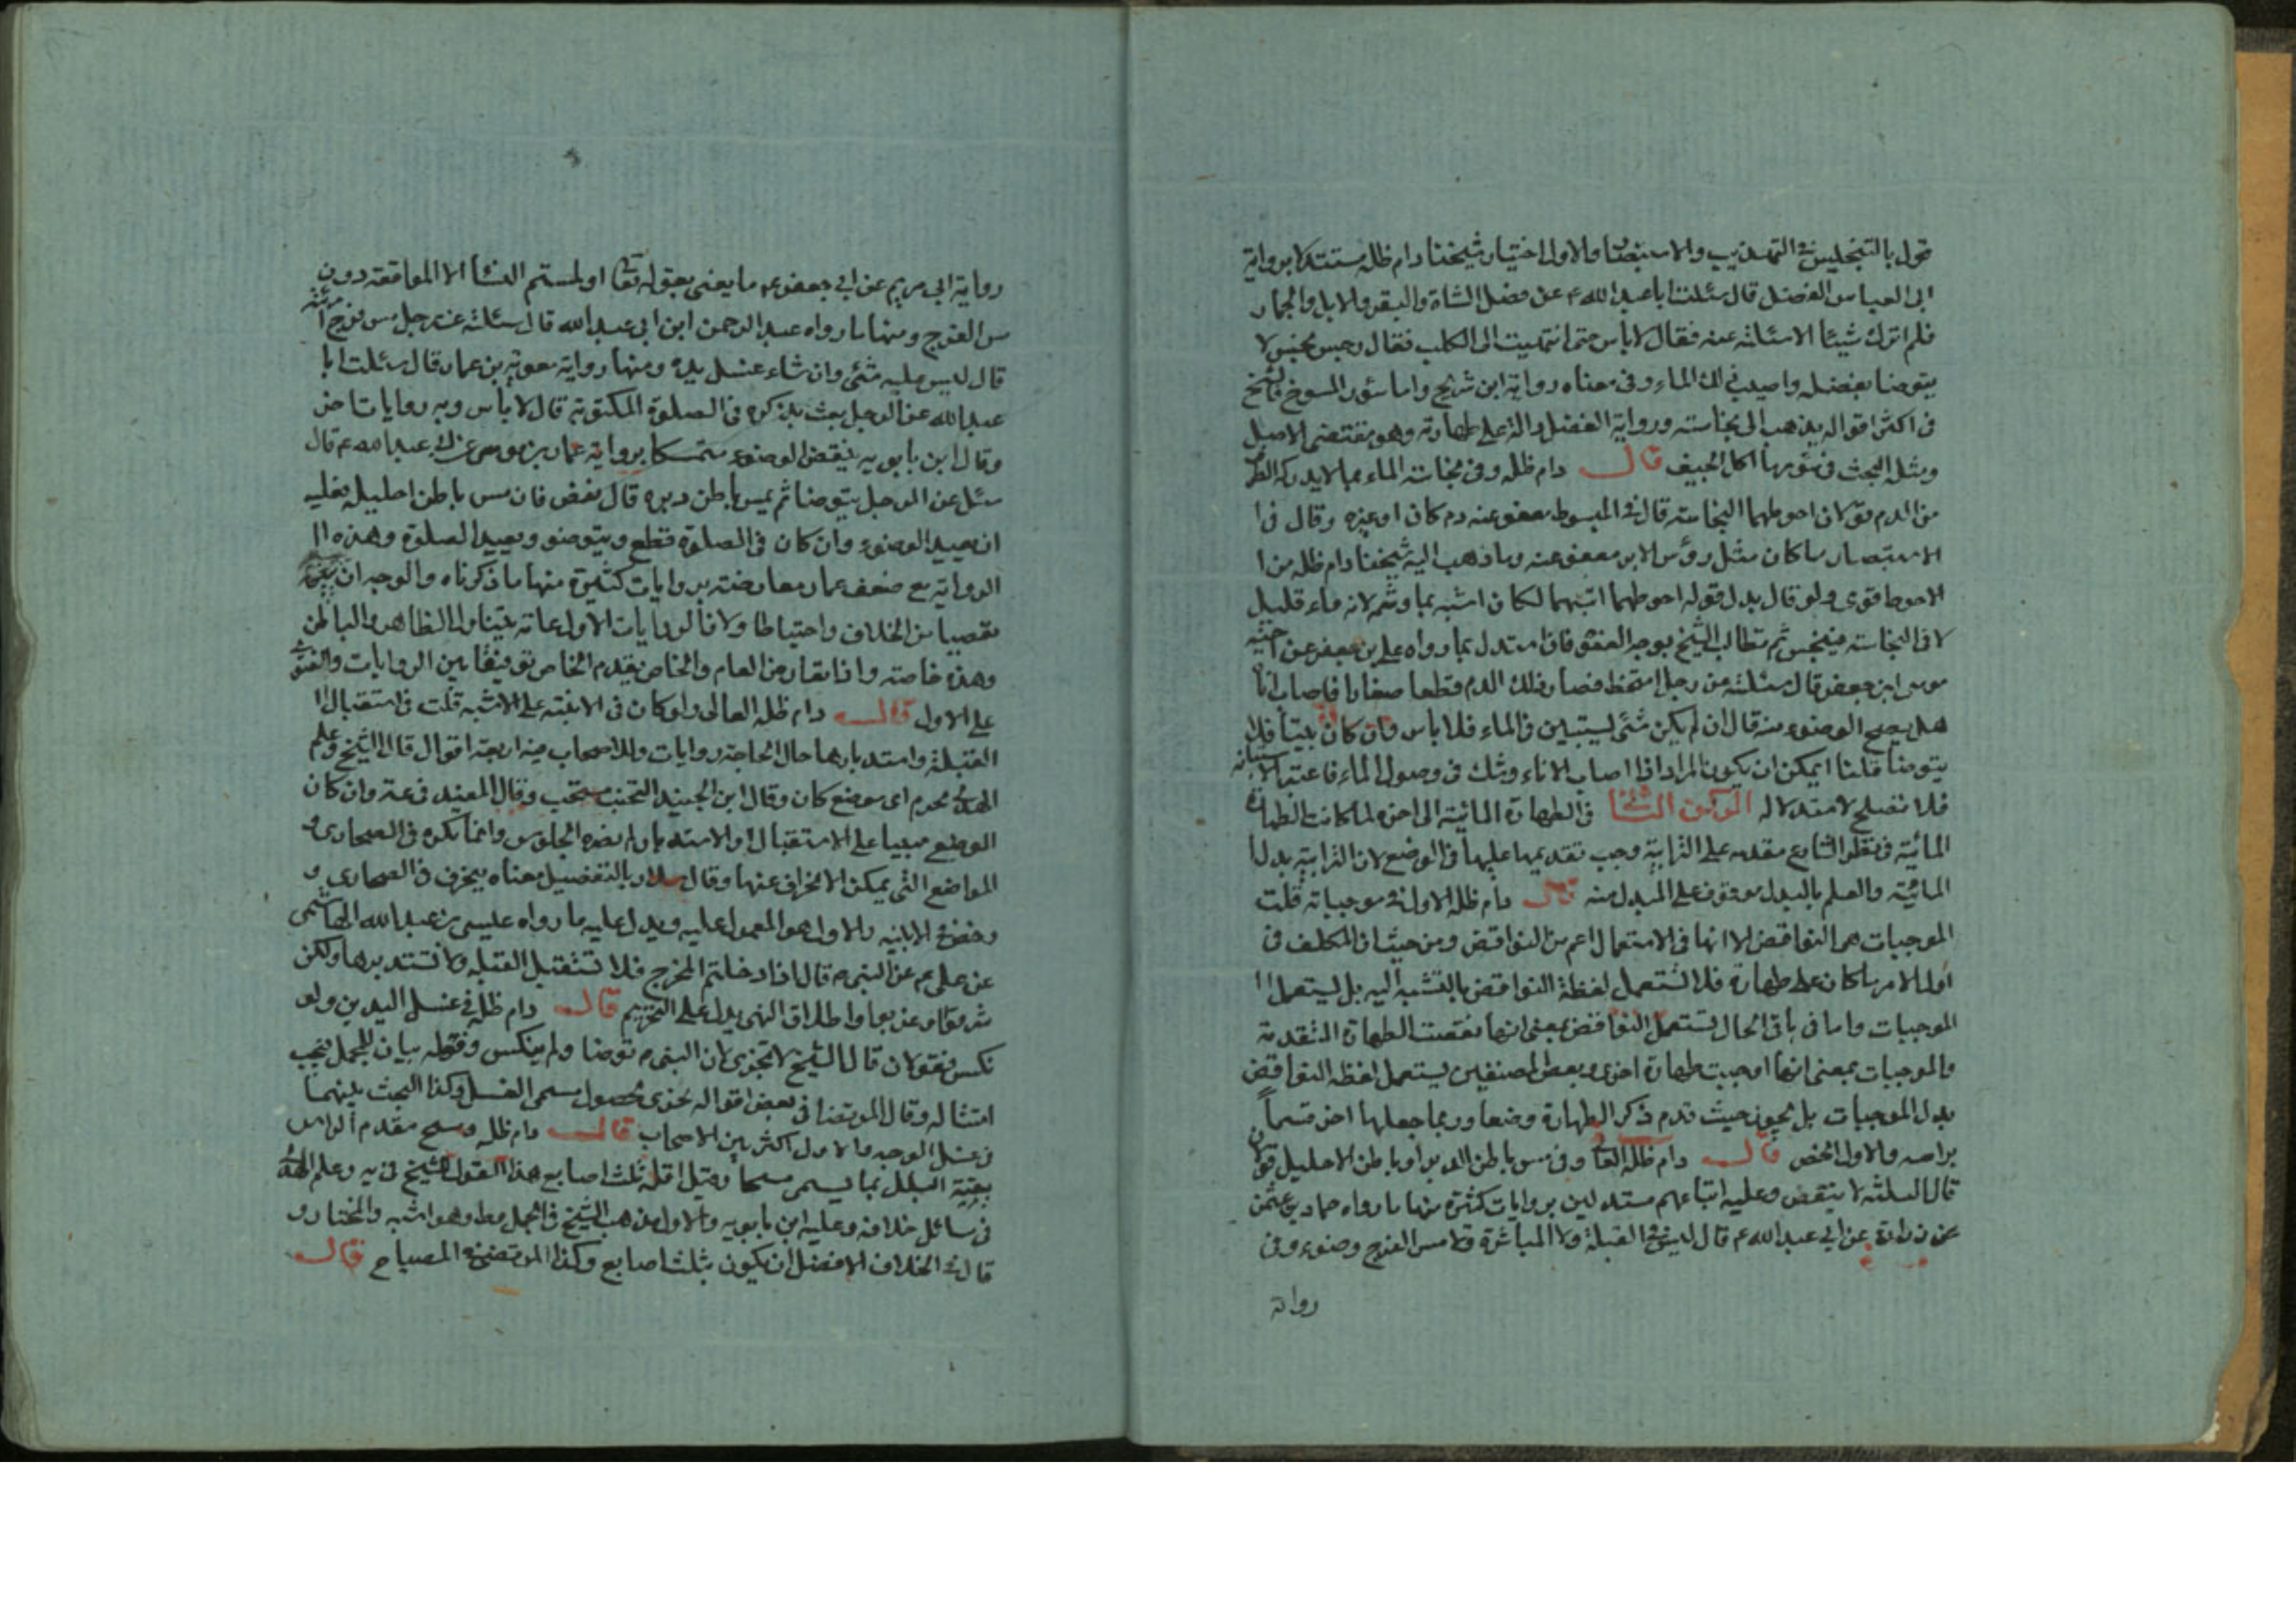 قول بالتنجيس في التهذيب والاستبصار والاول اختيار شيخنا دام ظله مستندا برواية
ابى العباس الفضل قال سئلت ابا عبد الله ع عن فضل الشاة والبقر والابل والحمار
فلم اترك شيئا الا سئلته عنه فقال لا باس حتى انتهيت الى الكلب فقال رجس نجس لا
يتوضا بفضله واصبب ذلك الماء وفى معناه رواية ابن شريح واما سؤر المسوخ فالشيخ
فى اكثر اقواله يذهب الى نجاسته ورواية الفضل دالة على طهارته وهو مقتضى الاصل
ومثله البحث فى سؤر ما اكل الجيف قال دام ظله وفى نجاسة الماء بما لا يدركه الطرف
من الدم قولان احوطهما النجاسة قال في المبسوط معفو عنه دم كان او غيره وقال فى ا
الاستبصار ما كان مثل رؤس الابر معفو عنه وما ذهب اليه شيخنا دام ظله من ا
الاحوط قوى ولو قال بدل قوله احوطهما اشبههما لكان اشبه بما وشم لانه ماء قليل
لاقى النجاسة فينجس ثم نطالب الشيخ بوجه العفو فان استدل بما رواه على بن جعفر عن اخيه
موسى ابن جعفر قال سئلته عن رجل امتخط فصار ذلك الدم قطعا صغارا فاصاب اناء
هل يصح الوضوء منه قال ان لم يكن شئ يستبين فى الماء فلا باس وان كان بينا فلا
يتوضا قلنا يمكن ان يكون المراد اذا اصاب الاناء وشك فى وصول الماء فاعتبر الاستبانة
فلا تصلح لاستدلاله الركن الثانى فى الطهارة المائية الى اخره لما كانت الطهارة
المائية فى نظر الشارع مقدمه على الترابية وجب تقديمها عليها فى الوضع لان الترابية بدل ا
المائية والعلم بالبدل موقوف على المبدل منه قال دام ظله الاول في موجباته قلت
الموجبات هى النواقض الا انها فى الاستعمال اعم من النواقض ومن حيث ان المكلف فى
اول الامر ما كان على طهارة فلا تستعمل لفظة النواقض بالنسبة اليه بل يستعمل ا
الموجبات واما فى باقى الحال تستعمل النواقض بمعنى انها نقضت الطهارة المتقدمة
والموجبات بمعنى انها اوجبت طهارة اخرى وبعض المصنفين يستعمل لفظه النواقض
بدل الموجبات بل يجوز حيث قدم ذكر الطهارة وضعا وربما جعلها اخر قسما
براسه والاول اخص قال دام ظله العا وفى مس باطن الدبر او باطن الاحليل قولان
قال الثلثه لا ينقض وعليه اتباعهم مستدلين بروايات كثيرة منها ما رواه حماد بن عثمن
عن زرارة عن ابي عبد الله ع قال ليس فى القبلة ولا المباشرة ولا مس الفرج وضوء وفى
رواية
رواية ابى مريم عن ابي جعفر ع ما يعنى بقوله تعا او لمستم النسا الا المواقعة دون
مس الفرج ومنها ما رواه عبد الرحمن ابن ابى عبد الله قال سئلته عن رجل مس فرج امرئته
قال ليس عليه شئ وان شاء غسل يده ومنها رواية معوية بن عمار قال سئلت ابا
عبد الله عن الرجل يعبث بذكره فى الصلوة المكتوبة قال لا باس وبه روايات اخر
وقال ابن بابويه ينقض الوضوء متمسكا برواية عمار بن موسى عن ابى عبد الله ع قال
سئل عن الرجل يتوضا ثم يمس باطن دبره قال نقض فان مس باطن احليله فعليه
ان يعيد الوضوء وان كان فى الصلوة قطع ويتوضو ويعيد الصلوة وهذه ا
الرواية مع ضعف عمار معارضته بروايات كثيرة منها ما ذكرناه والوجه ان
تفصيا من الخلاف واحتياطا ولان الروايات الاول عامة يتناول الظاهر والباطن
وهذه خاصته واذا تعارض العام والخاص يقدم الخاص توفيقا بين الروايات والفتوى
على الاول قال دام ظله العالى ولو كان فى الابنية على الاشبه قلت فى استقبال ا
القبلة واستدبارها حال الحاجة روايات وللاصحاب فيه اربعة اقوال قال الشيخ وعلم
الهدى محرم اى موضع كان وقال ابن الجنيد التجنب مستحب وقال المفيد فى عة وان كان
الموضع مبنيا على الاستقبال او الاستدبار لم يضره الجلوس وانما يكره فى الصحارى و
المواضع التى يمكن الانحراف عنها وقال سلار بالتفصيل معناه ينحرف فى الصحارى و
رخص في الابنيه والاول هو المعمول عليه ويدل عليه ما رواه عيسى بن عبد الله الهاشمى
عن على ع عن النبى ص قال اذا دخلتم المخرج فلا تستقبل القبله ولا تستدبرها ولكن
شرقوا وغربوا واطلاق النهى يدل على التحريم قال دام ظله في غسل اليدين ولو
نكس فقولان قال الشيخ لا تجزى لان النبى ص توضا ولم ينكس وفعله بيان للمجمل فيجب
امتثاله وقال المرتضا فى بعض اقواله يجزى لحصول مسمى الغسل وكذا البحث بينهما
فى غسل الوجه والاول اكثر بين الاصحاب قال دام ظله ومسح مقدم الراس
ببقية البلل بما يسمى مسحا وقيل اقله ثلث اصابع هذا القول للشيخ فى يه وعلم الهدى
فى مسائل خلافه وعليه ابن بابويه والاول مذهب الشيخ فى الجمل وط وهو اشبه والمختار و
قال في الخلاف الافضل ان يكون بثلث اصابع وكذا المرتضى في المصباح قال